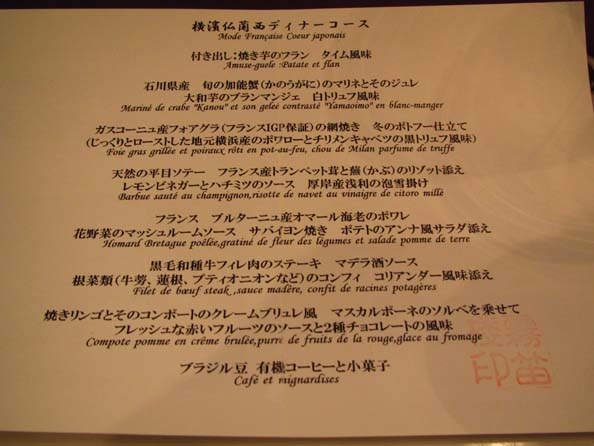 横濱仏蘭西ディナーコース
Mode Française Coeur japonais
付き出し:焼き芋のフラン　タイム風味
Amuse-guele :Patate et flan
石川県産　旬の加能蟹(かのうがに)のマリネとそのジュレ
大和芋のブランマンジェ　白トリュフ風味
Mariné de crabe "Kanou" et son geleé contrasté "Yamaoimo" en blanc-manger
ガスコーニュ産フォアグラ(フランスIGP保証)の網焼き　冬のポトフー仕立て
(じっくりとローストした地元横浜産のポワローとチリメンキャベツの黒トリュフ風味)
Foie gras grillée et poiraux rôti en pot-au-feu, chou de Milan parfume de truffe
天然の平目ソテー　フランス産トランペット茸と蕪(かぶ)のリゾット添え
レモンビネガーとハチミツのソース　厚岸産浅利の泡雪掛け
Barbue sauté au champignon,risotte de navet au vinaigre de citoro millè
フランス　ブルターニュ産オマール海老のポワレ
花野菜のマッシュルームソース　サバイヨン焼き　ポテトのアンナ風サラダ添え
Homard Bretague poêlée,gratiné de fleur des légumes et salade pomme de terre
黒毛和種牛フィレ肉のステーキ　マデラ酒ソース
根菜類(牛蒡、蓮根、プティオニオンなど)のコンフィ　コリアンダー風味添え
Filet de bœuf steak ,sauce madère, confit de racines potagères
焼きリンゴとそのコンポートのクレームブリュレ風　マスカルポーネのソルベを乗せて
フレッシュな赤いフルーツのソースと2種チョコレートの風味
Compote pomme en crême brulée,purré de fruits de la rouge,glace au fromage
ブラジル豆　有機コーヒーと小菓子
Café et mignardises
印笛